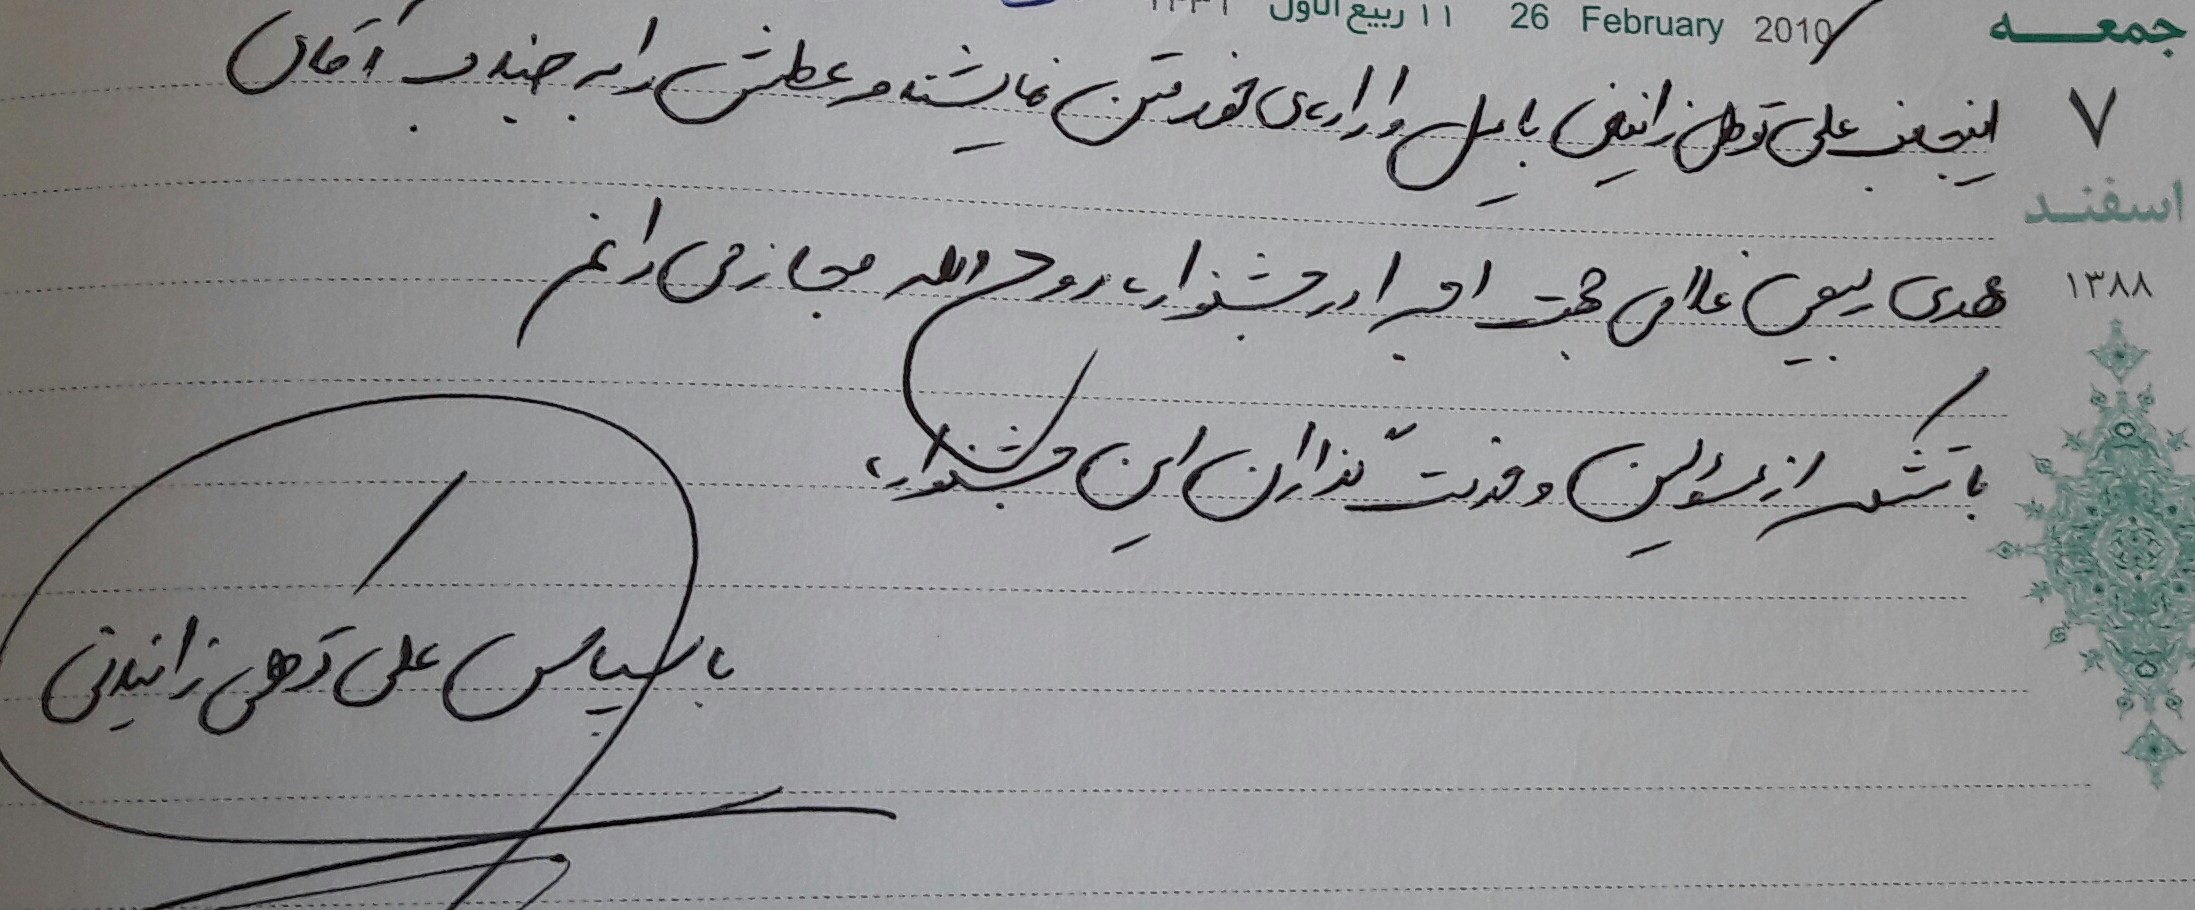 جمعه
۷
اسفند
۱۳۸۸
26 February 2010
۱۱ ربیع الاول ۱۴۳۱
اینجانب علی توکلی زانیانی با میل و اراده‌ی خود متن نمایشنامه عطش را به جناب آقای
مهدی ربیعی غلامی جهت اجرا در جشنواره روح الله مجاز می دانم
با تشکر از مسؤلین و خدمت گذاران این جشنواره
با سپاس علی زانیانی